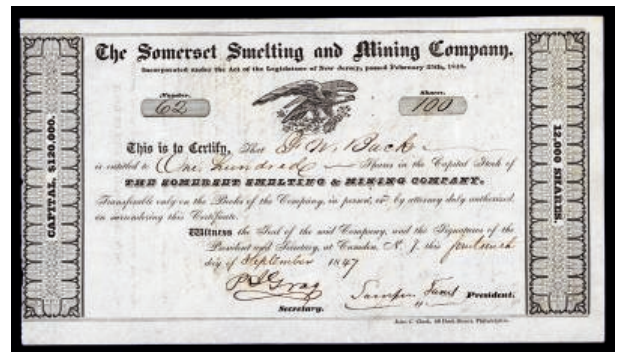 The Somerset Smelting and Mining Company.
Incorporated under the Act of the Legislature of New Jersey, passed February 25th, 1846.
Number. Shares.
62 100
This is to Certify, That F. W. Back
is entitled to One hundred Shares in the Capital Stock of
THE SOMERSET SMELTING & MINING COMPANY,
Transferable only on the Books of the Company, in person, or by attorney duly authorized,
on surrendering this Certificate.
Witness the Seal of the said Company, and the Signatures of the
President and Secretary, at Camden, N. J. this
day of September 1847
Gray
Secretary.
President.
John C. Clark, Philadelphia.
CAPITAL, $120,000.
12,000 SHARES.